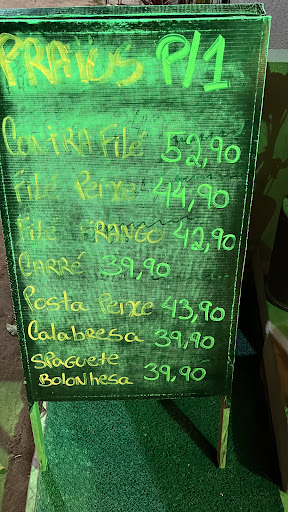 PRATOS P/1
CONTRA FILÉ 52,90
FILÉ PEIXE 44,90
FILÉ FRANGO 42,90
CARRÉ 39,90
Posta Peixe 43,90
Calabresa 39,90
SPAGUETE
BOLONHESA 39,90